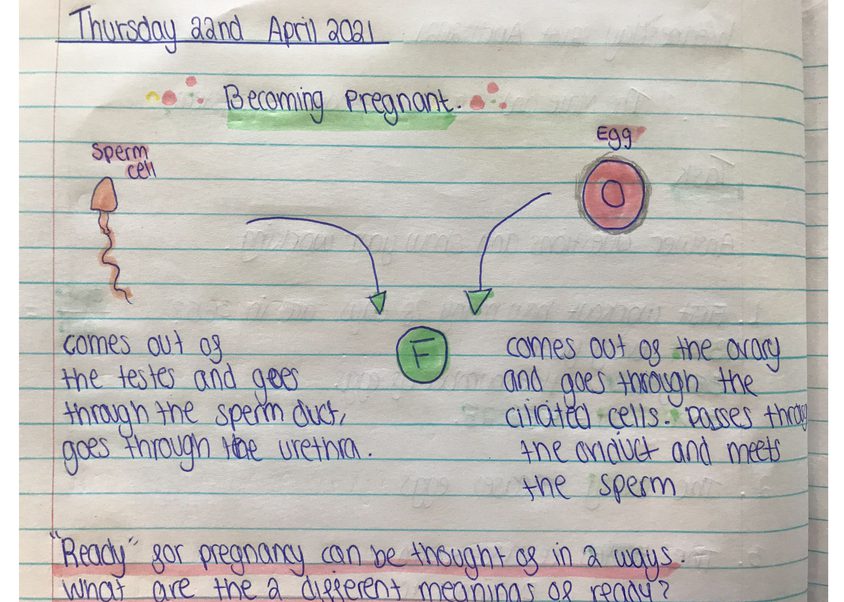 Thursday 22nd April 2021
Becoming pregnant.
Sperm
cell
Egg
F
comes out of
the testes and goes
through the sperm duct,
goes through the urethra.
comes out of the ovary
and goes through the
ciliated cells. Passes throug
the oviduct and meets
the sperm
"Ready" for pregnancy can be thought of in 2 ways.
What are the 2 different meanings of ready?